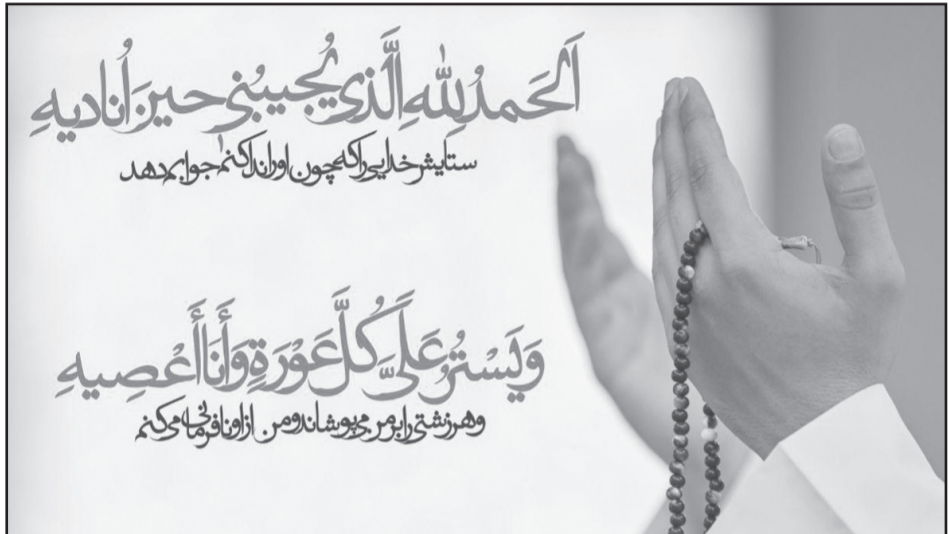 اَلْحَمدُ لِلّٰهِ الَّذی یُجیبُنی حینَ اُنادیهِ
ستایش خدایی را که چون او را ندا کنم جوابم دهد
وَیَسْتُرُ عَلَیَّ کُلَّ عَوْرَةٍ وَأَنَا أَعْصِیهِ
و هر زشتی را بر من می پوشاند و من از او نافرمانی می کنم